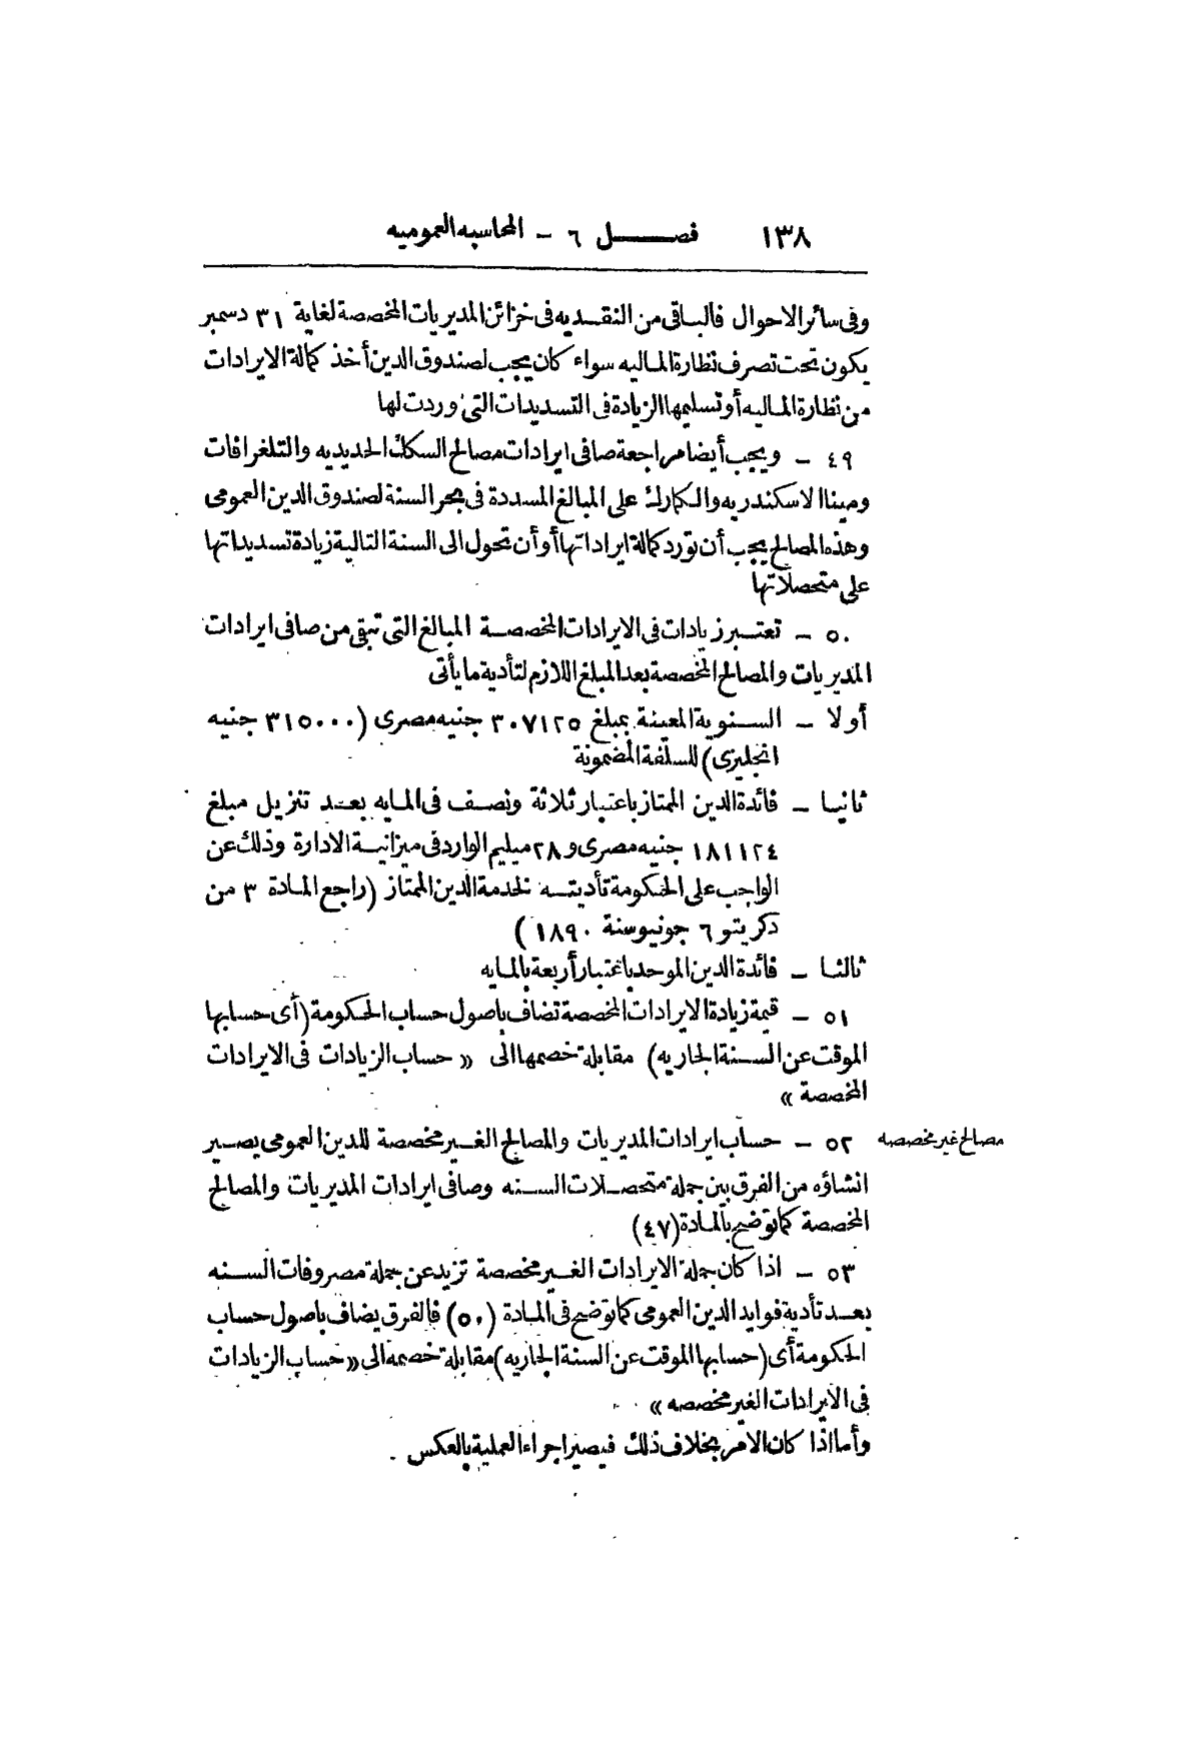 ١٣٨ فصل ٦ – المحاسبه العموميه
وفى سائر الاحوال فالباقى من النقديه فى خزائن المديريات المخصصة لغاية ٣١ دسمبر
يكون تحت تصرف نظارة الماليه سواء كان يجب لصندوق الدين أخذ كمالة الايرادات
من نظارة الماليه أو تسليمها الزيادة فى التسديدات التى وردت لها
٤٩ – ويجب أيضا مراجعة صافى ايرادات مصالح السكك الحديديه والتلغرافات
ومينا الاسكندريه والكمارك على المبالغ المسددة فى بحر السنة لصندوق الدين العمومى
وهذه المصالح يجب أن تورد كمالة ايراداتها أو أن تحول الى السنة التالية زيادة تسديداتها
على متحصلاتها
٥٠ – تعتبر زيادات فى الايرادات المخصصة المبالغ التى تبقى من صافى ايرادات
المديريات والمصالح المخصصة بعد المبلغ اللازم لتأدية ما يأتى
أولا – السنوية المعينة بمبلغ ٣٠٧١٢٥ جنيه مصرى (٣١٥٠٠٠ جنيه
انجليزى) للسلفة المضمونة
ثانيا – فائدة الدين الممتاز باعتبار ثلاثة ونصف فى المايه بعد تنزيل مبلغ
١٨١١٢٤ جنيه مصرى و ٢٨ ميليم الوارد فى ميزانية الادارة وذلك عن
الواجب على الحكومة تأديته لخدمة الدين الممتاز (راجع المادة ٣ من
دكريتو ٦ جونيو سنة ١٨٩٠)
ثالثا – فائدة الدين الموحد باعتبار أربعة بالمايه
٥١ – قيمة زيادة الايرادات المخصصة تضاف باصول حساب الحكومة (أى حسابها
الموقت عن السنة الجاريه) مقابلة خصمها الى « حساب الزيادات فى الايرادات
المخصصة »
مصالح غير مخصصه
٥٢ – حساب ايرادات المديريات والمصالح الغير مخصصة للدين العمومى يصير
انشاؤه من الفرق بين جملة متحصلات السنه وصافى ايرادات المديريات والمصالح
المخصصة كما توضح بالمادة (٤٧)
٥٣ – اذا كان جملة الايرادات الغير مخصصة تزيد عن جملة مصروفات السنه
بعد تأدية فوايد الدين العمومى كما توضح فى المادة (٥٠) فالفرق يضاف باصول حساب
الحكومة أى (حسابها الموقت عن السنة الجاريه) مقابلة خصمه الى « حساب الزيادات
فى الايرادات الغير مخصصه »
وأما اذا كان الامر بخلاف ذلك فيصير اجراء العملية بالعكس .